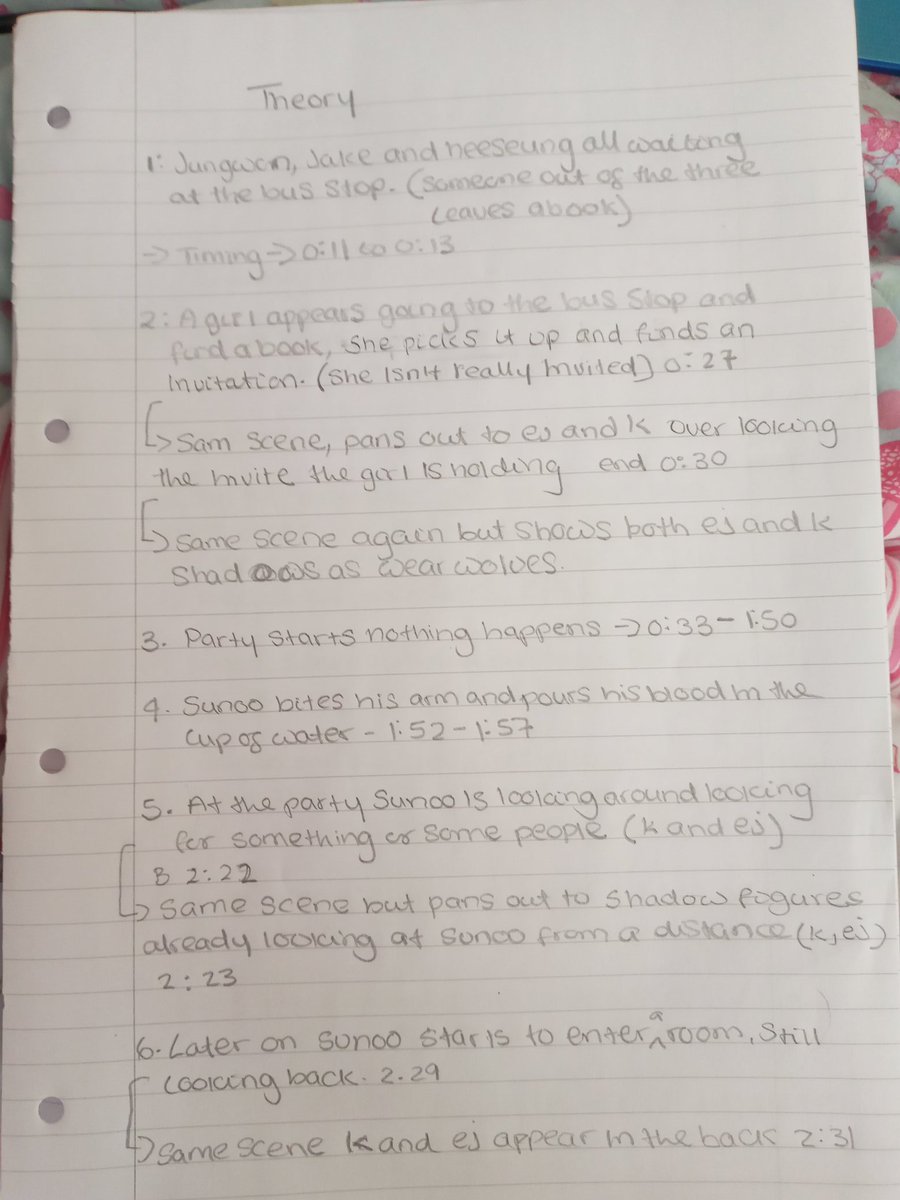 Theory
1: Jungwon, Jake and heeseung all waiting
at the bus stop. (someone out of the three
leaves a book)
-> Timing -> 0:11 to 0:13
2: A girl appears going to the bus stop and
find a book, she picks it up and finds an
invitation. (she isn't really invited) 0:27
↳ Sam scene, pans out to ej and k over looking
the invite the girl is holding end 0:30
↳ same scene again but shows both ej and k
shadows as wear wolves.
3. Party starts nothing happens -> 0:33 - 1:50
4. Sunoo bites his arm and pours his blood in the
cup of water - 1:52 - 1:57
5. At the party Sunoo is looking around looking
for something or some people (k and ej)
B 2:22
↳ same scene but pans out to shadow fogares
already looking at sunoo from a distance (k, ej)
2:23
6. Later on sunoo starts to enter a room, still
looking back. 2.29
↳ same scene k and ej appear in the back 2:31